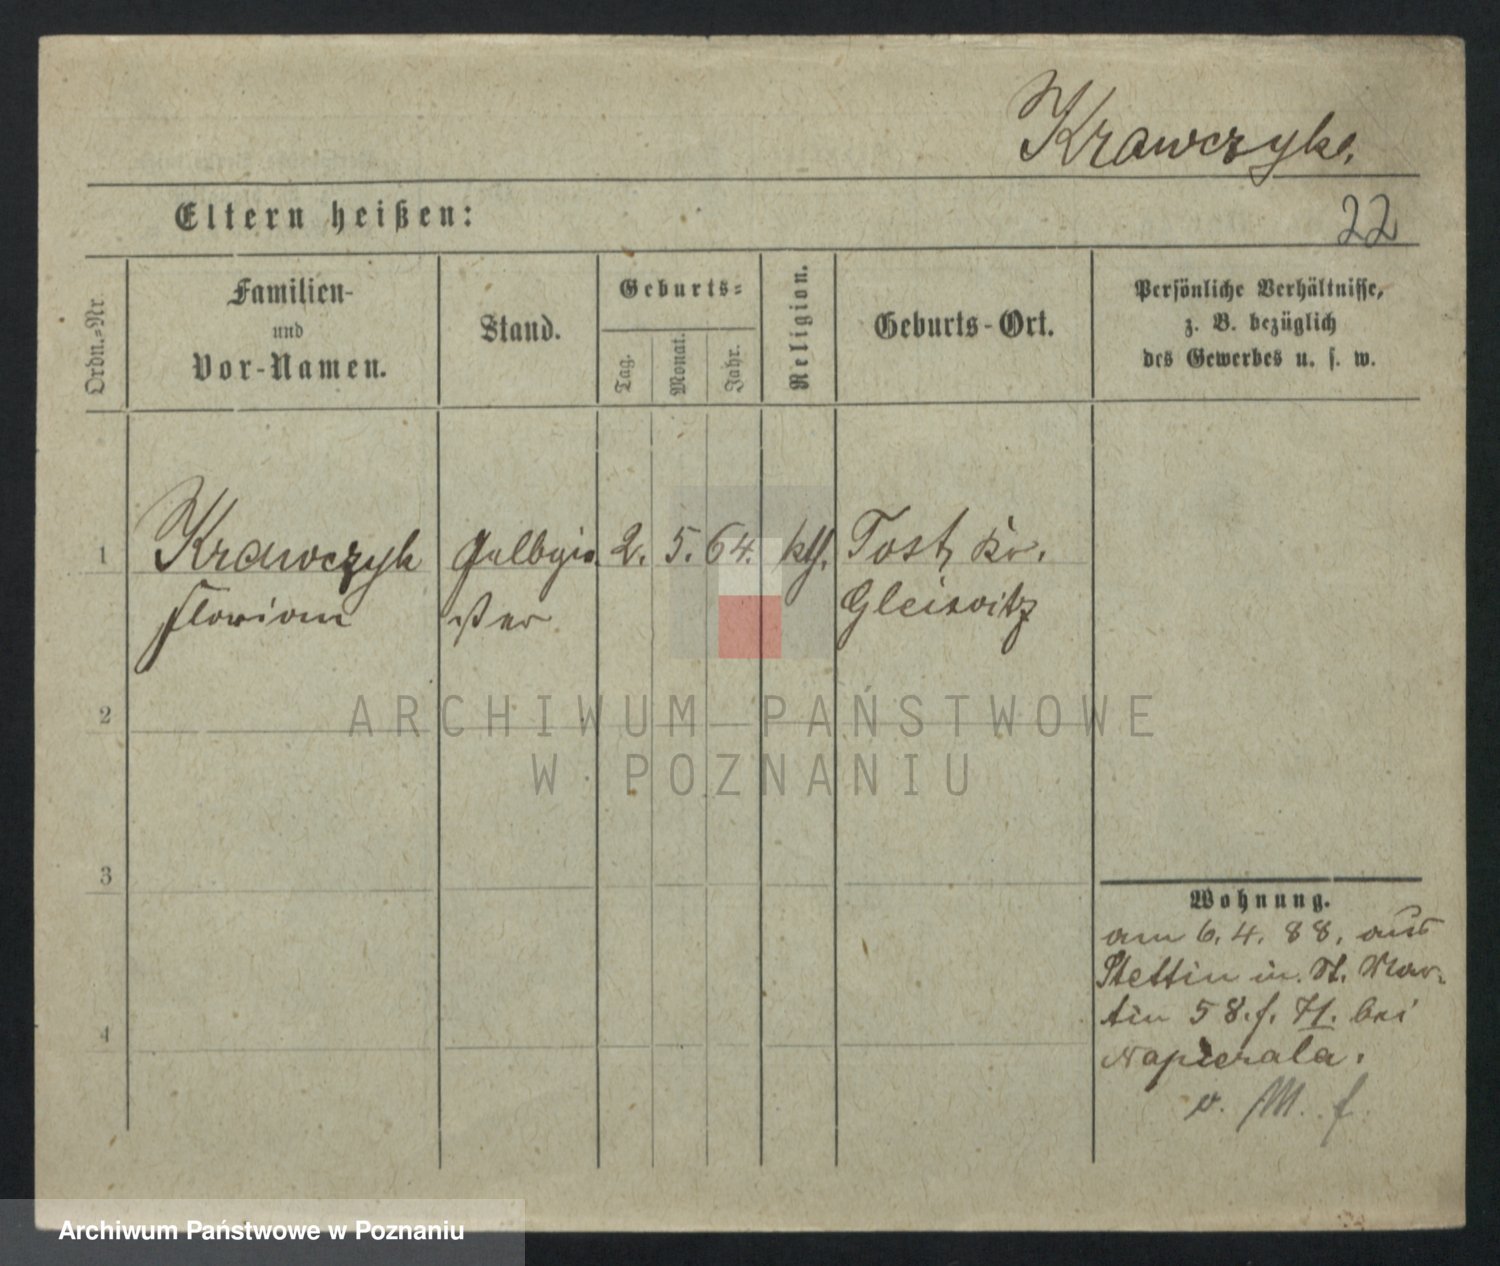 Krawczyk.
Eltern heißen:
22
Ordn.-Nr.
Familien-
und
Vor-Namen.
Stand.
Geburts-
Tag.
Monat.
Jahr.
Religion.
Geburts-Ort.
Persönliche Verhältnisse,
z. B. bezüglich
des Gewerbes u. s. w.
1
Krawczyk
Florian
Gelbgie-
ßer
2. 5. 64.
kth.
Tost, Kr.
Gleiwitz
2
3
4
Wohnung.
am 6. 4. 88. aus
Stettin in St. Mar-
tin 58. bei
Napierala.
v. M. f.
ARCHIWUM PAŃSTWOWE
W POZNANIU
Archiwum Państwowe w Poznaniu